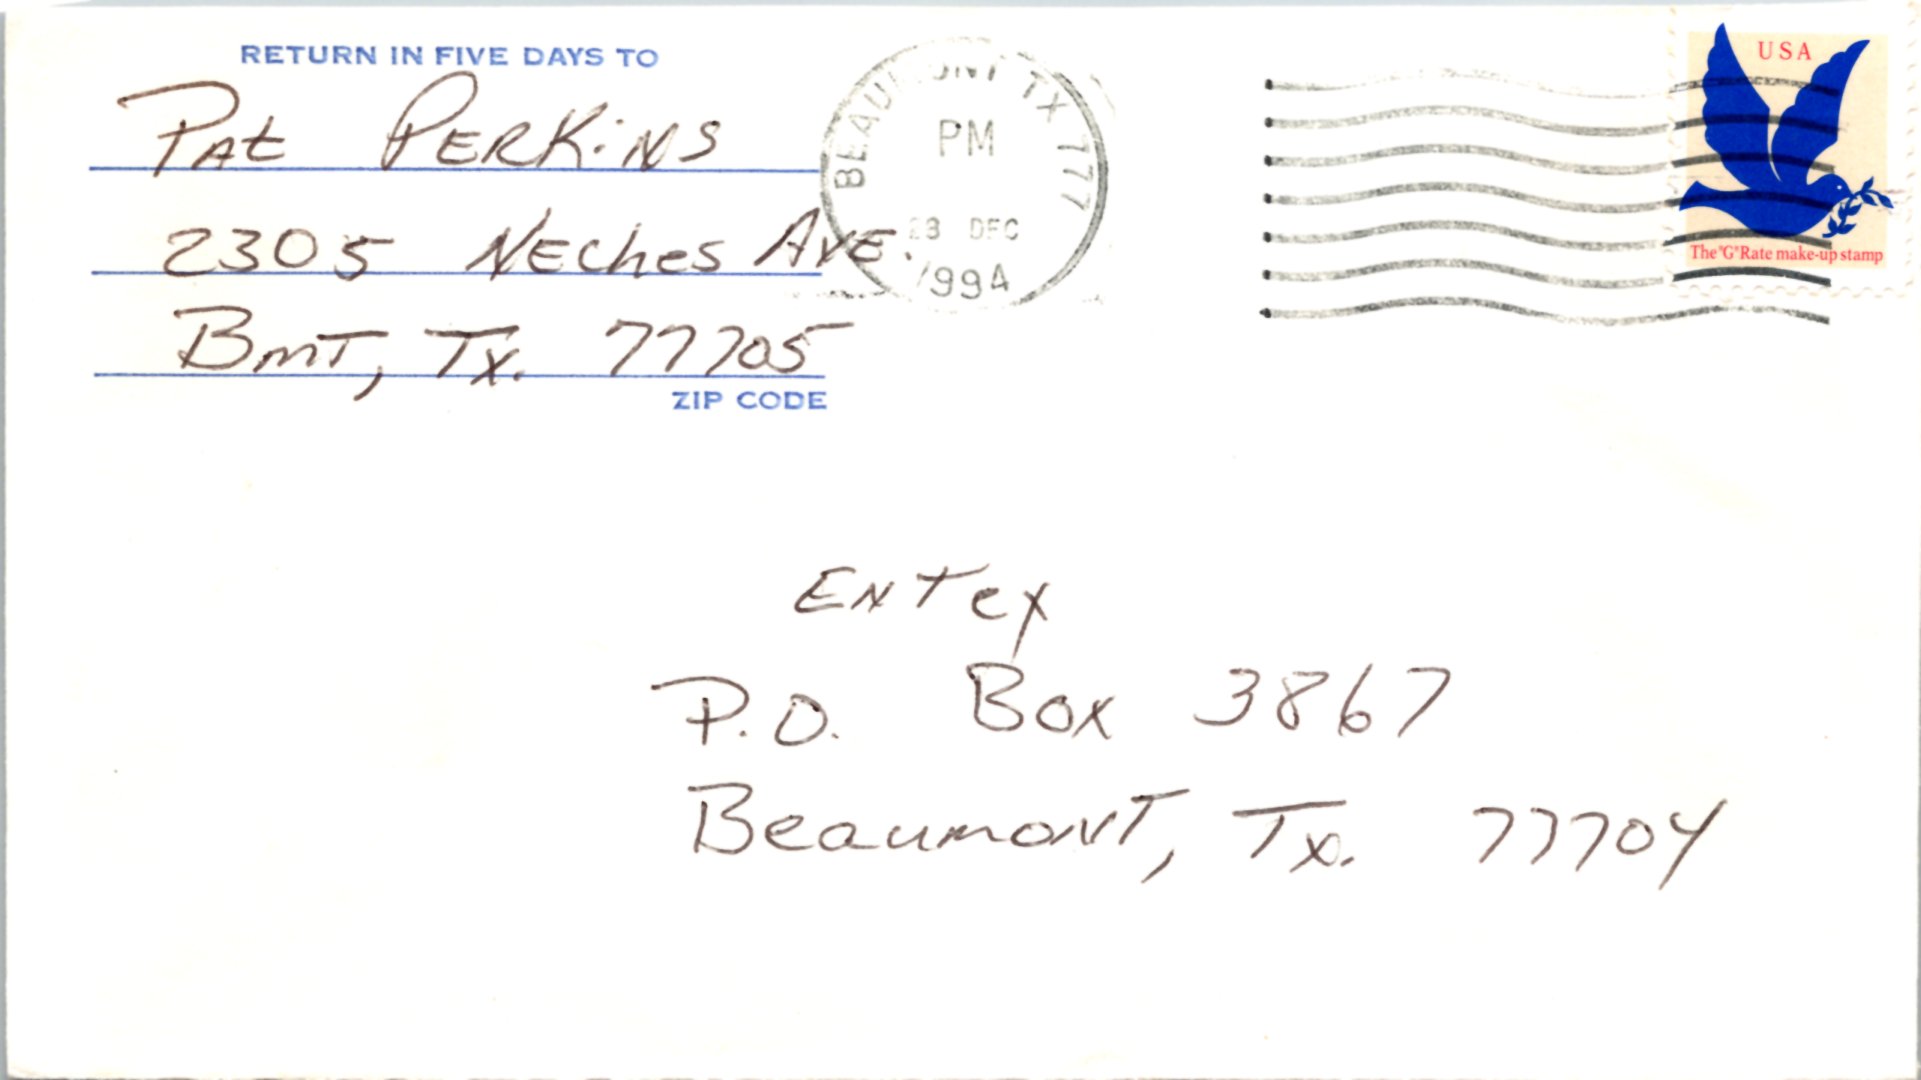 RETURN IN FIVE DAYS TO
Pat Perkins
2305 Neches Ave.
Bmt, Tx. 77705
ZIP CODE
BEAUMONT TX 777
PM
23 DEC
1994
USA
The "G" Rate make-up stamp
Entex
P.O. Box 3867
Beaumont, Tx. 77704